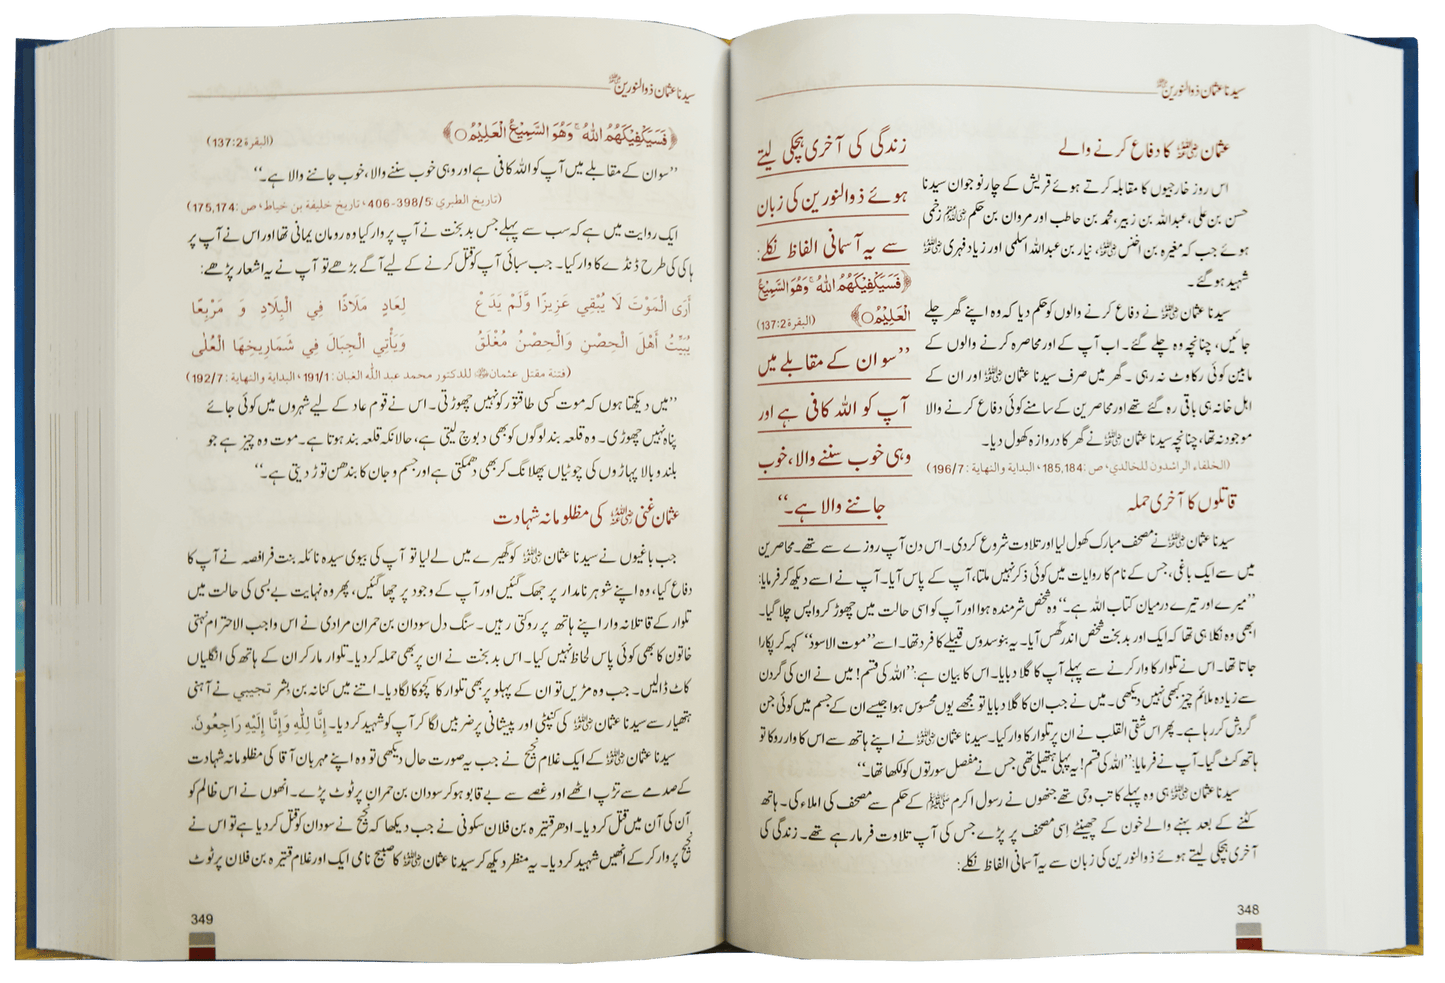 سیدنا عثمان ذوالنورین رضی اللہ عنہ
عثمان رضی اللہ عنہ کا دفاع کرنے والے
اس روز خارجیوں کا مقابلہ کرتے ہوئے قریش کے چار نوجوان سیدنا
حسن بن علی، عبداللہ بن زبیر، محمد بن حاطب اور مروان بن حکم رضی اللہ عنہم زخمی
ہوئے جب کہ مغیرہ بن اخنس رضی اللہ عنہ، نیار بن عبداللہ اسلمی اور زیاد فہری رضی اللہ عنہ
شہید ہو گئے۔
سیدنا عثمان رضی اللہ عنہ نے دفاع کرنے والوں کو حکم دیا کہ وہ اپنے گھر چلے
جائیں، چنانچہ وہ چلے گئے۔ اب آپ کے اور محاصرہ کرنے والوں کے
مابین کوئی رکاوٹ نہ رہی۔ گھر میں صرف سیدنا عثمان رضی اللہ عنہ اور ان کے
اہل خانہ ہی باقی رہ گئے تھے اور محاصرین کے سامنے کوئی دفاع کرنے والا
موجود نہ تھا، چنانچہ سیدنا عثمان رضی اللہ عنہ نے گھر کا دروازہ کھول دیا۔
(الخلفاء الراشدون للخالدي، ص: 185,184، البداية والنهاية: 196/7)
زندگی کی آخری ہچکی لیتے
ہوئے ذوالنورین کی زبان
سے یہ آسمانی الفاظ نکلے:
﴿فَسَيَكْفِيكَهُمُ اللّٰهُ ۚ وَهُوَ السَّمِيْعُ
الْعَلِيْمُ﴾ (البقرة 137:2)
’’سو ان کے مقابلے میں
آپ کو اللہ کافی ہے اور
وہی خوب سننے والا، خوب
جاننے والا ہے۔‘‘
قاتلوں کا آخری حملہ
سیدنا عثمان رضی اللہ عنہ نے مصحف مبارک کھول لیا اور تلاوت شروع کر دی۔ اس دن آپ روزے سے تھے۔ محاصرین
میں سے ایک باغی، جس کے نام کا روایات میں کوئی ذکر نہیں ملتا، آپ کے پاس آیا۔ آپ نے اسے دیکھ کر فرمایا:
’’میرے اور تیرے درمیان کتاب اللہ ہے۔‘‘ وہ شخص شرمندہ ہوا اور آپ کو اسی حالت میں چھوڑ کر واپس چلا گیا۔
ابھی وہ نکلا ہی تھا کہ ایک اور بدبخت شخص اندر گھس آیا۔ یہ بنو سدوس قبیلے کا فرد تھا۔ اسے ’’موت الاسود‘‘ کہہ کر پکارا
جاتا تھا۔ اس نے تلوار کا وار کرنے سے پہلے آپ کا گلا دبایا۔ اس کا بیان ہے: ’’اللہ کی قسم! میں نے ان کی گردن
سے زیادہ ملائم چیز کبھی نہیں دیکھی۔ میں نے جب ان کا گلا دبایا تو مجھے یوں محسوس ہوا جیسے ان کے جسم میں کوئی جن
گردش کر رہا ہے۔ پھر اس شقی القلب نے ان پر تلوار کا وار کیا۔ سیدنا عثمان رضی اللہ عنہ نے اپنے ہاتھ سے اس کا وار روکا تو
ہاتھ کٹ گیا۔ آپ نے فرمایا: ’’اللہ کی قسم! یہ پہلی ہتھیلی تھی جس نے مفصل سورتوں کو لکھا تھا۔‘‘
سیدنا عثمان رضی اللہ عنہ ہی وہ پہلے کاتب وحی تھے جنھوں نے رسول اکرم ﷺ کے حکم سے مصحف کی املاء کی۔ ہاتھ
کٹنے کے بعد بہنے والے خون کے چھینٹے اسی مصحف پر پڑے جس کی آپ تلاوت فرما رہے تھے۔ زندگی کی
آخری ہچکی لیتے ہوئے ذوالنورین کی زبان سے یہ آسمانی الفاظ نکلے:
348
سیدنا عثمان ذوالنورین رضی اللہ عنہ
﴿فَسَيَكْفِيكَهُمُ اللّٰهُ ۚ وَهُوَ السَّمِيْعُ الْعَلِيْمُ﴾ (البقرة 137:2)
’’سو ان کے مقابلے میں آپ کو اللہ کافی ہے اور وہی خوب سننے والا، خوب جاننے والا ہے۔‘‘
(تاريخ الطبري: 398/5-406، تاريخ خليفة بن خياط، ص: 175,174)
ایک روایت میں ہے کہ سب سے پہلے جس بدبخت نے آپ پر وار کیا وہ رومان یمانی تھا اور اس نے آپ پر
ہاکی کی طرح ڈنڈے کا وار کیا۔ جب سبائی آپ کو قتل کرنے کے لیے آگے بڑھے تو آپ نے یہ اشعار پڑھے:
أَرَى الْمَوْتَ لَا يُبْقِي عَزِيزًا وَّلَمْ يَدَعْ لِعَادٍ مَلَاذًا فِي الْبِلَادِ وَ مَرْبِعًا
يُبَيِّتُ أَهْلَ الْحِصْنِ وَالْحِصْنُ مُغْلَقٌ وَيَأْتِي الْجِبَالَ فِي شَمَارِيخِهَا الْعُلٰى
(فتنة مقتل عثمان رضی اللہ عنہ للدكتور محمد عبد الله الغبان: 191/1، البداية والنهاية: 192/7)
’’میں دیکھتا ہوں کہ موت کسی طاقتور کو نہیں چھوڑتی۔ اس نے قوم عاد کے لیے شہروں میں کوئی جائے
پناہ نہیں چھوڑی۔ وہ قلعہ بند لوگوں کو بھی دبوچ لیتی ہے، حالانکہ قلعہ بند ہوتا ہے۔ موت وہ چیز ہے جو
بلند و بالا پہاڑوں کی چوٹیاں پھلانگ کر بھی دھمکتی ہے اور جسم و جان کا بندھن توڑ دیتی ہے۔‘‘
عثمان غنی رضی اللہ عنہ کی مظلومانہ شہادت
جب باغیوں نے سیدنا عثمان رضی اللہ عنہ کو گھیرے میں لے لیا تو آپ کی بیوی سیدہ نائلہ بنت فرافصہ نے آپ کا
دفاع کیا، وہ اپنے شوہر نامدار پر جھک گئیں اور آپ کے وجود پر چھا گئیں، پھر وہ نہایت بے بسی کی حالت میں
تلوار کے قاتلانہ وار اپنے ہاتھ پر روکتی رہیں۔ سنگ دل سودان بن حمران مرادی نے اس واجب الاحترام نہتی
خاتون کا بھی کوئی پاس لحاظ نہیں کیا۔ اس بدبخت نے ان پر بھی حملہ کر دیا۔ تلوار مار کر ان کے ہاتھ کی انگلیاں
کاٹ ڈالیں۔ جب وہ مڑیں تو ان کے پہلو پر بھی تلوار کا کچوکا لگا دیا۔ اتنے میں کنانہ بن بشر تجیبی نے آہنی
ہتھیار سے سیدنا عثمان رضی اللہ عنہ کی کنپٹی اور پیشانی پر ضربیں لگا کر آپ کو شہید کر دیا۔ إِنَّا لِلّٰهِ وَإِنَّا إِلَيْهِ رَاجِعُونَ.
سیدنا عثمان رضی اللہ عنہ کے ایک غلام نجیح نے جب یہ صورت حال دیکھی تو وہ اپنے مہربان آقا کی مظلومانہ شہادت
کے صدمے سے تڑپ اٹھے اور غصے سے بے قابو ہو کر سودان بن حمران پر ٹوٹ پڑے۔ انھوں نے اس ظالم کو
آن کی آن میں قتل کر دیا۔ ادھر قتیرہ بن فلان سکونی نے جب دیکھا کہ نجیح نے سودان کو قتل کر دیا ہے تو اس نے
نجیح پر وار کر کے انھیں شہید کر دیا۔ یہ منظر دیکھ کر سیدنا عثمان رضی اللہ عنہ کا صبیح نامی ایک اور غلام قتیرہ بن فلان پر ٹوٹ
349